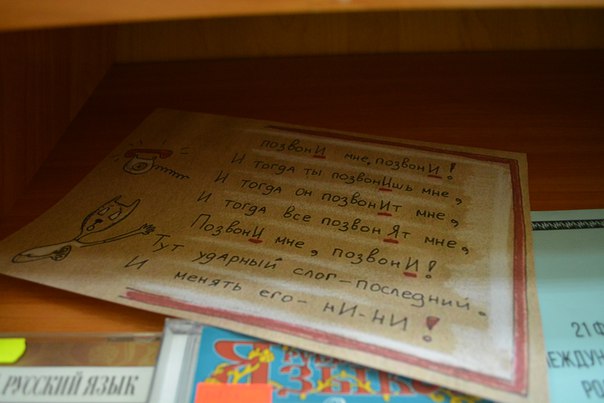 позвонИ мне, позвонИ!
И тогда ты позвонИшь мне,
И тогда он позвонИт мне,
И тогда все позвонЯт мне,
ПозвонИ мне, позвонИ!
Тут ударный слог - последний.
И менять его - нИ-нИ!
РУССКИЙ ЯЗЫК
21